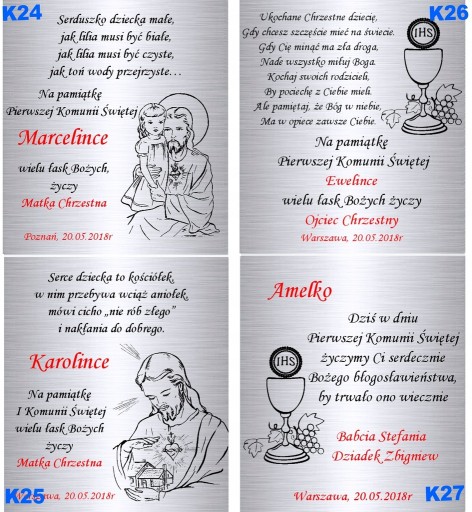 K24
Serduszko dziecka małe,
jak lilia musi być białe,
jak lilia musi być czyste,
jak toń wody przejrzyste…
Na pamiątkę
Pierwszej Komunii Świętej
Marcelince
wielu łask Bożych,
życzy
Matka Chrzestna
Poznań, 20.05.2018r
K26
Ukochane Chrzestne dziecię,
Gdy chcesz szczęście mieć na świecie.
Gdy Cię minąć ma zła droga,
Nade wszystko miłuj Boga.
Kochaj swoich rodzicieli,
By pociechę z Ciebie mieli.
Ale pamiętaj, że Bóg w niebie,
Ma w opiece zawsze Ciebie.
IHS
Na pamiątkę
Pierwszej Komunii Świętej
Ewelince
wielu łask Bożych życzy
Ojciec Chrzestny
Warszawa, 20.05.2018r
Serce dziecka to kościółek,
w nim przebywa wciąż aniołek,
mówi cicho „nie rób złego”
i nakłania do dobrego.
Karolince
Na pamiątkę
I Komunii Świętej
wielu łask Bożych
życzy
Matka Chrzestna
K25
20.05.2018r
Amelko
Dziś w dniu
Pierwszej Komunii Świętej
życzymy Ci serdecznie
Bożego błogosławieństwa,
by trwało ono wiecznie
IHS
Babcia Stefania
Dziadek Zbigniew
Warszawa, 20.05.2018r
K27